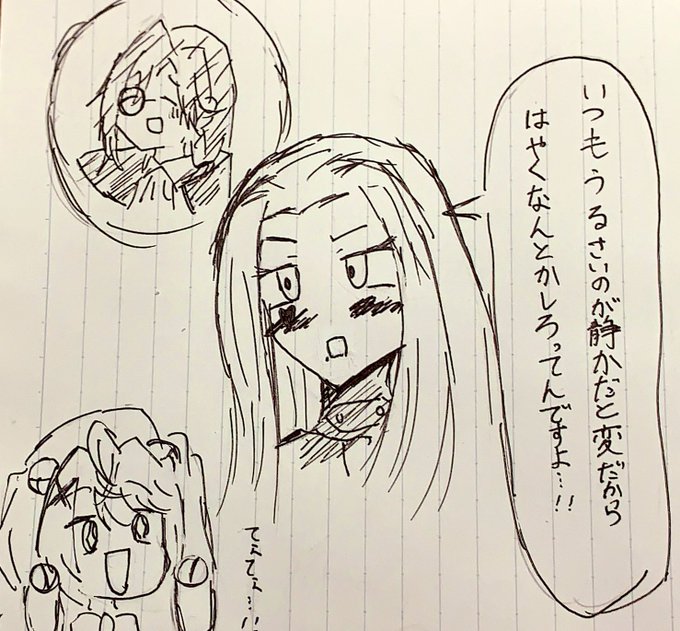 いつもうるさいのが静かだと変だから
はやくなんとかしろってんですよ…!!
てぇてぇ…!!